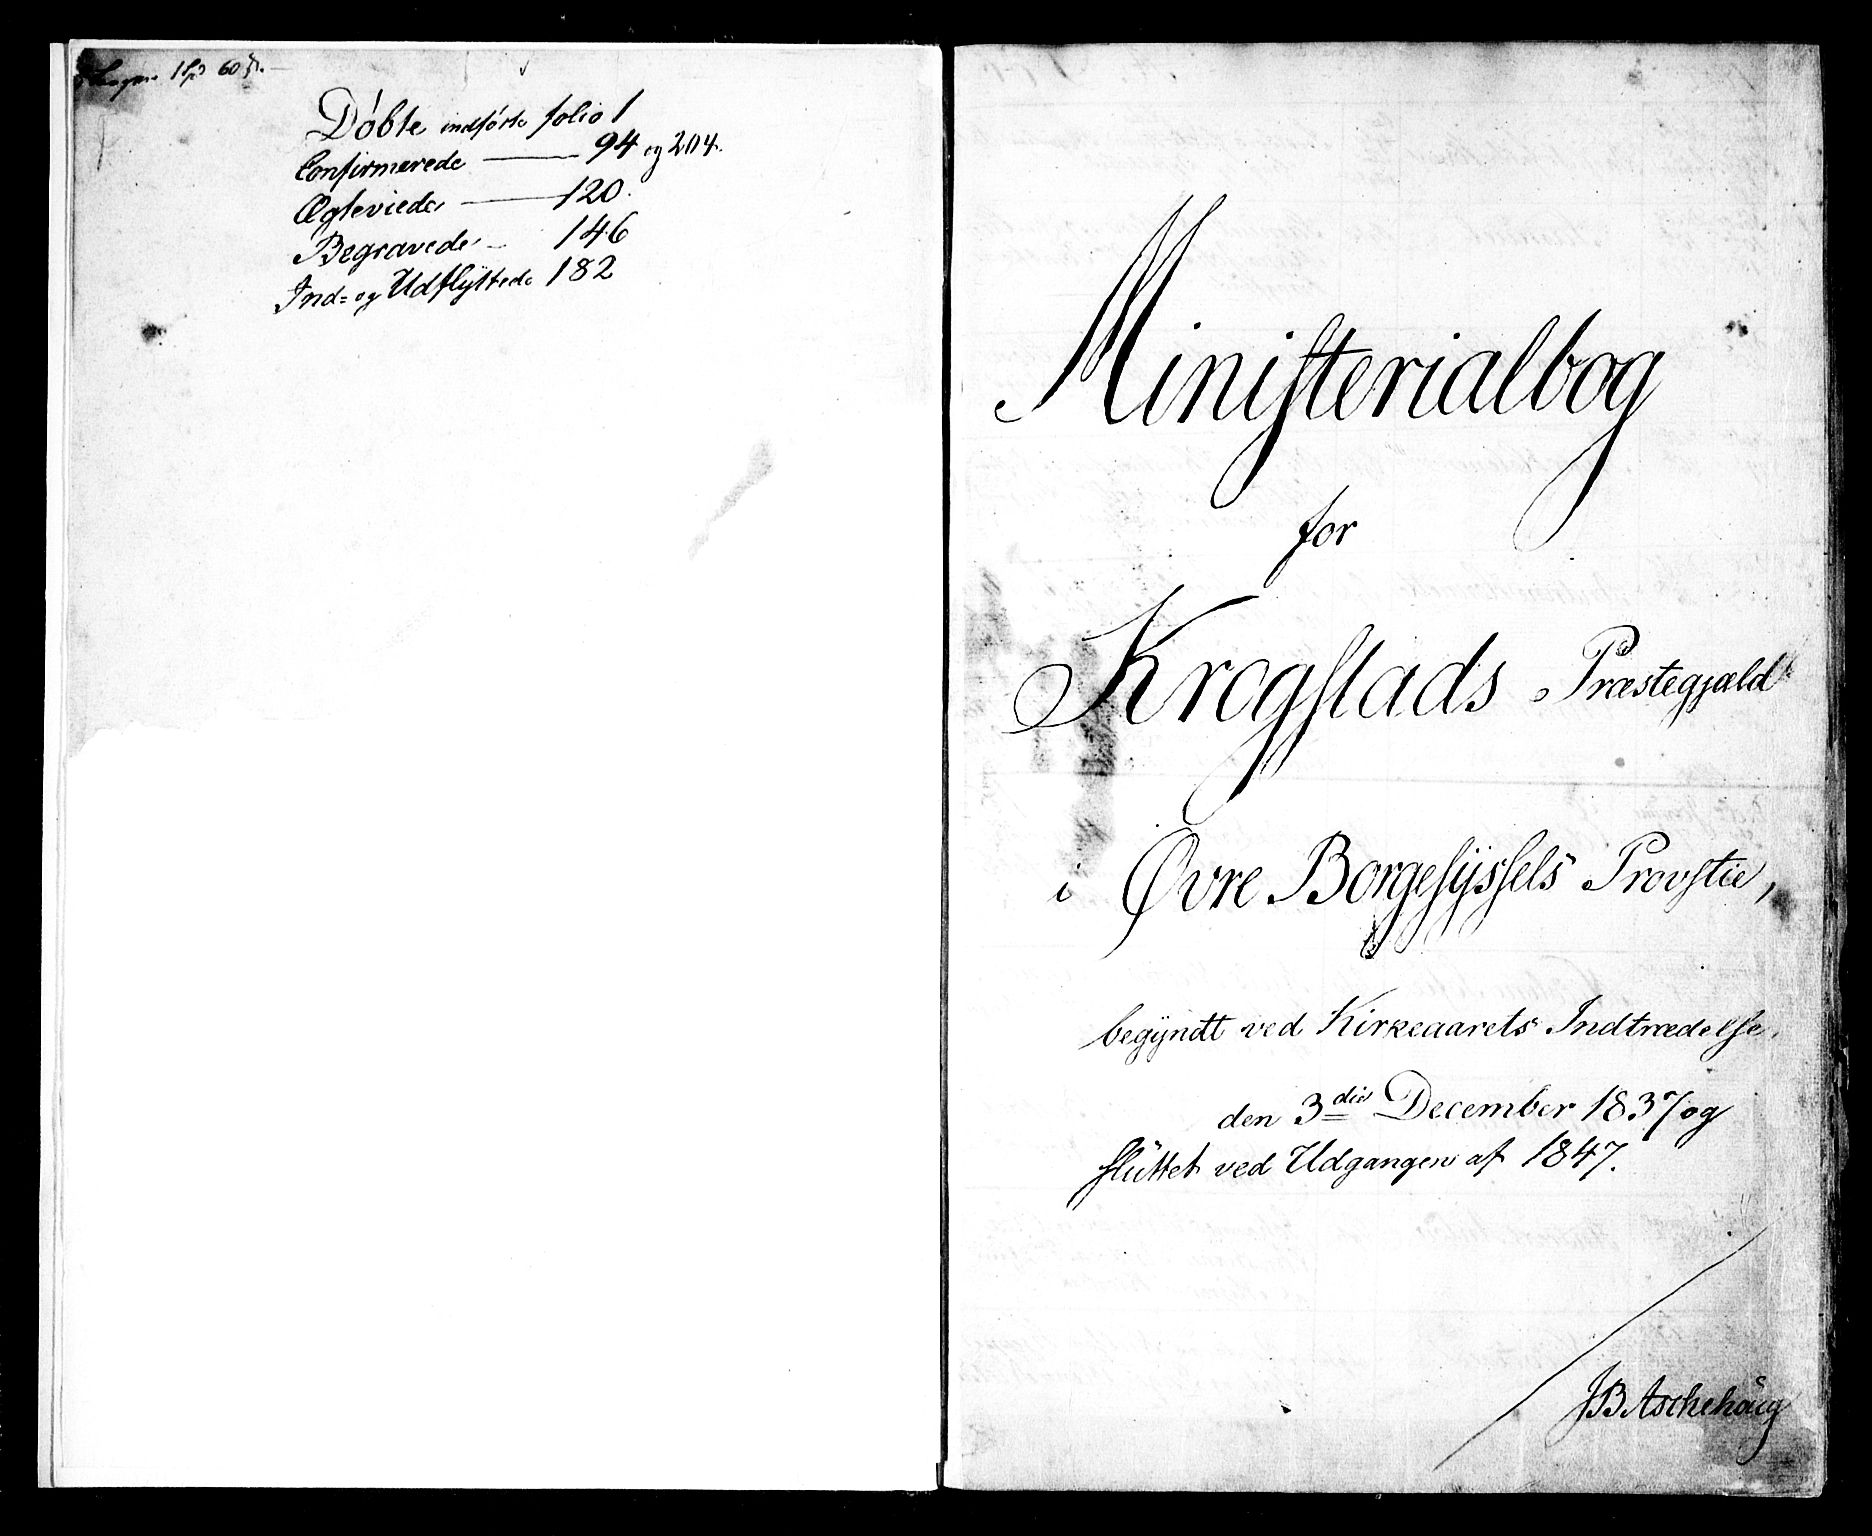 1 Sp 60 ß.
Döbte indførte folio 1
Confirmerede — 94 og 204.
Ægteviede — 120.
Begravede — 146
Ind= og Udflyttede 182
Ministerialbog
for
Krogstads Præstegjæld
i Øvre Borgesyssels Provstie,
begyndt ved Kirkeaarets Indtrædelse,
den 3die December 1837 og
sluttet ved Udgangen af 1847.
JB Aschehoug